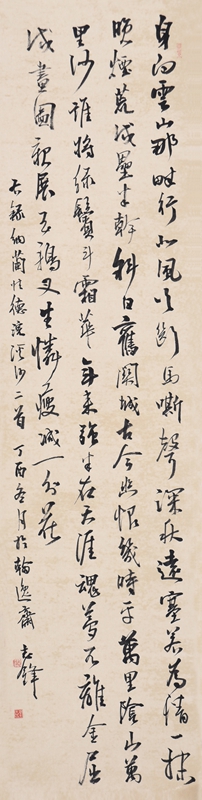 身向雲山那畔行北風吹斷馬嘶聲深秋遠塞若為情一抹
晚煙荒戍壘半竿斜日舊關城古今幽恨幾時平萬里陰山萬
里沙誰將綠鬢斗霜華年來強半在天涯魂夢不離金屈
戌畫圖親展玉鴉叉生憐瘦減一分花
右錄納蘭性德浣溪沙二首丁酉冬月於翰逸齋志鋒